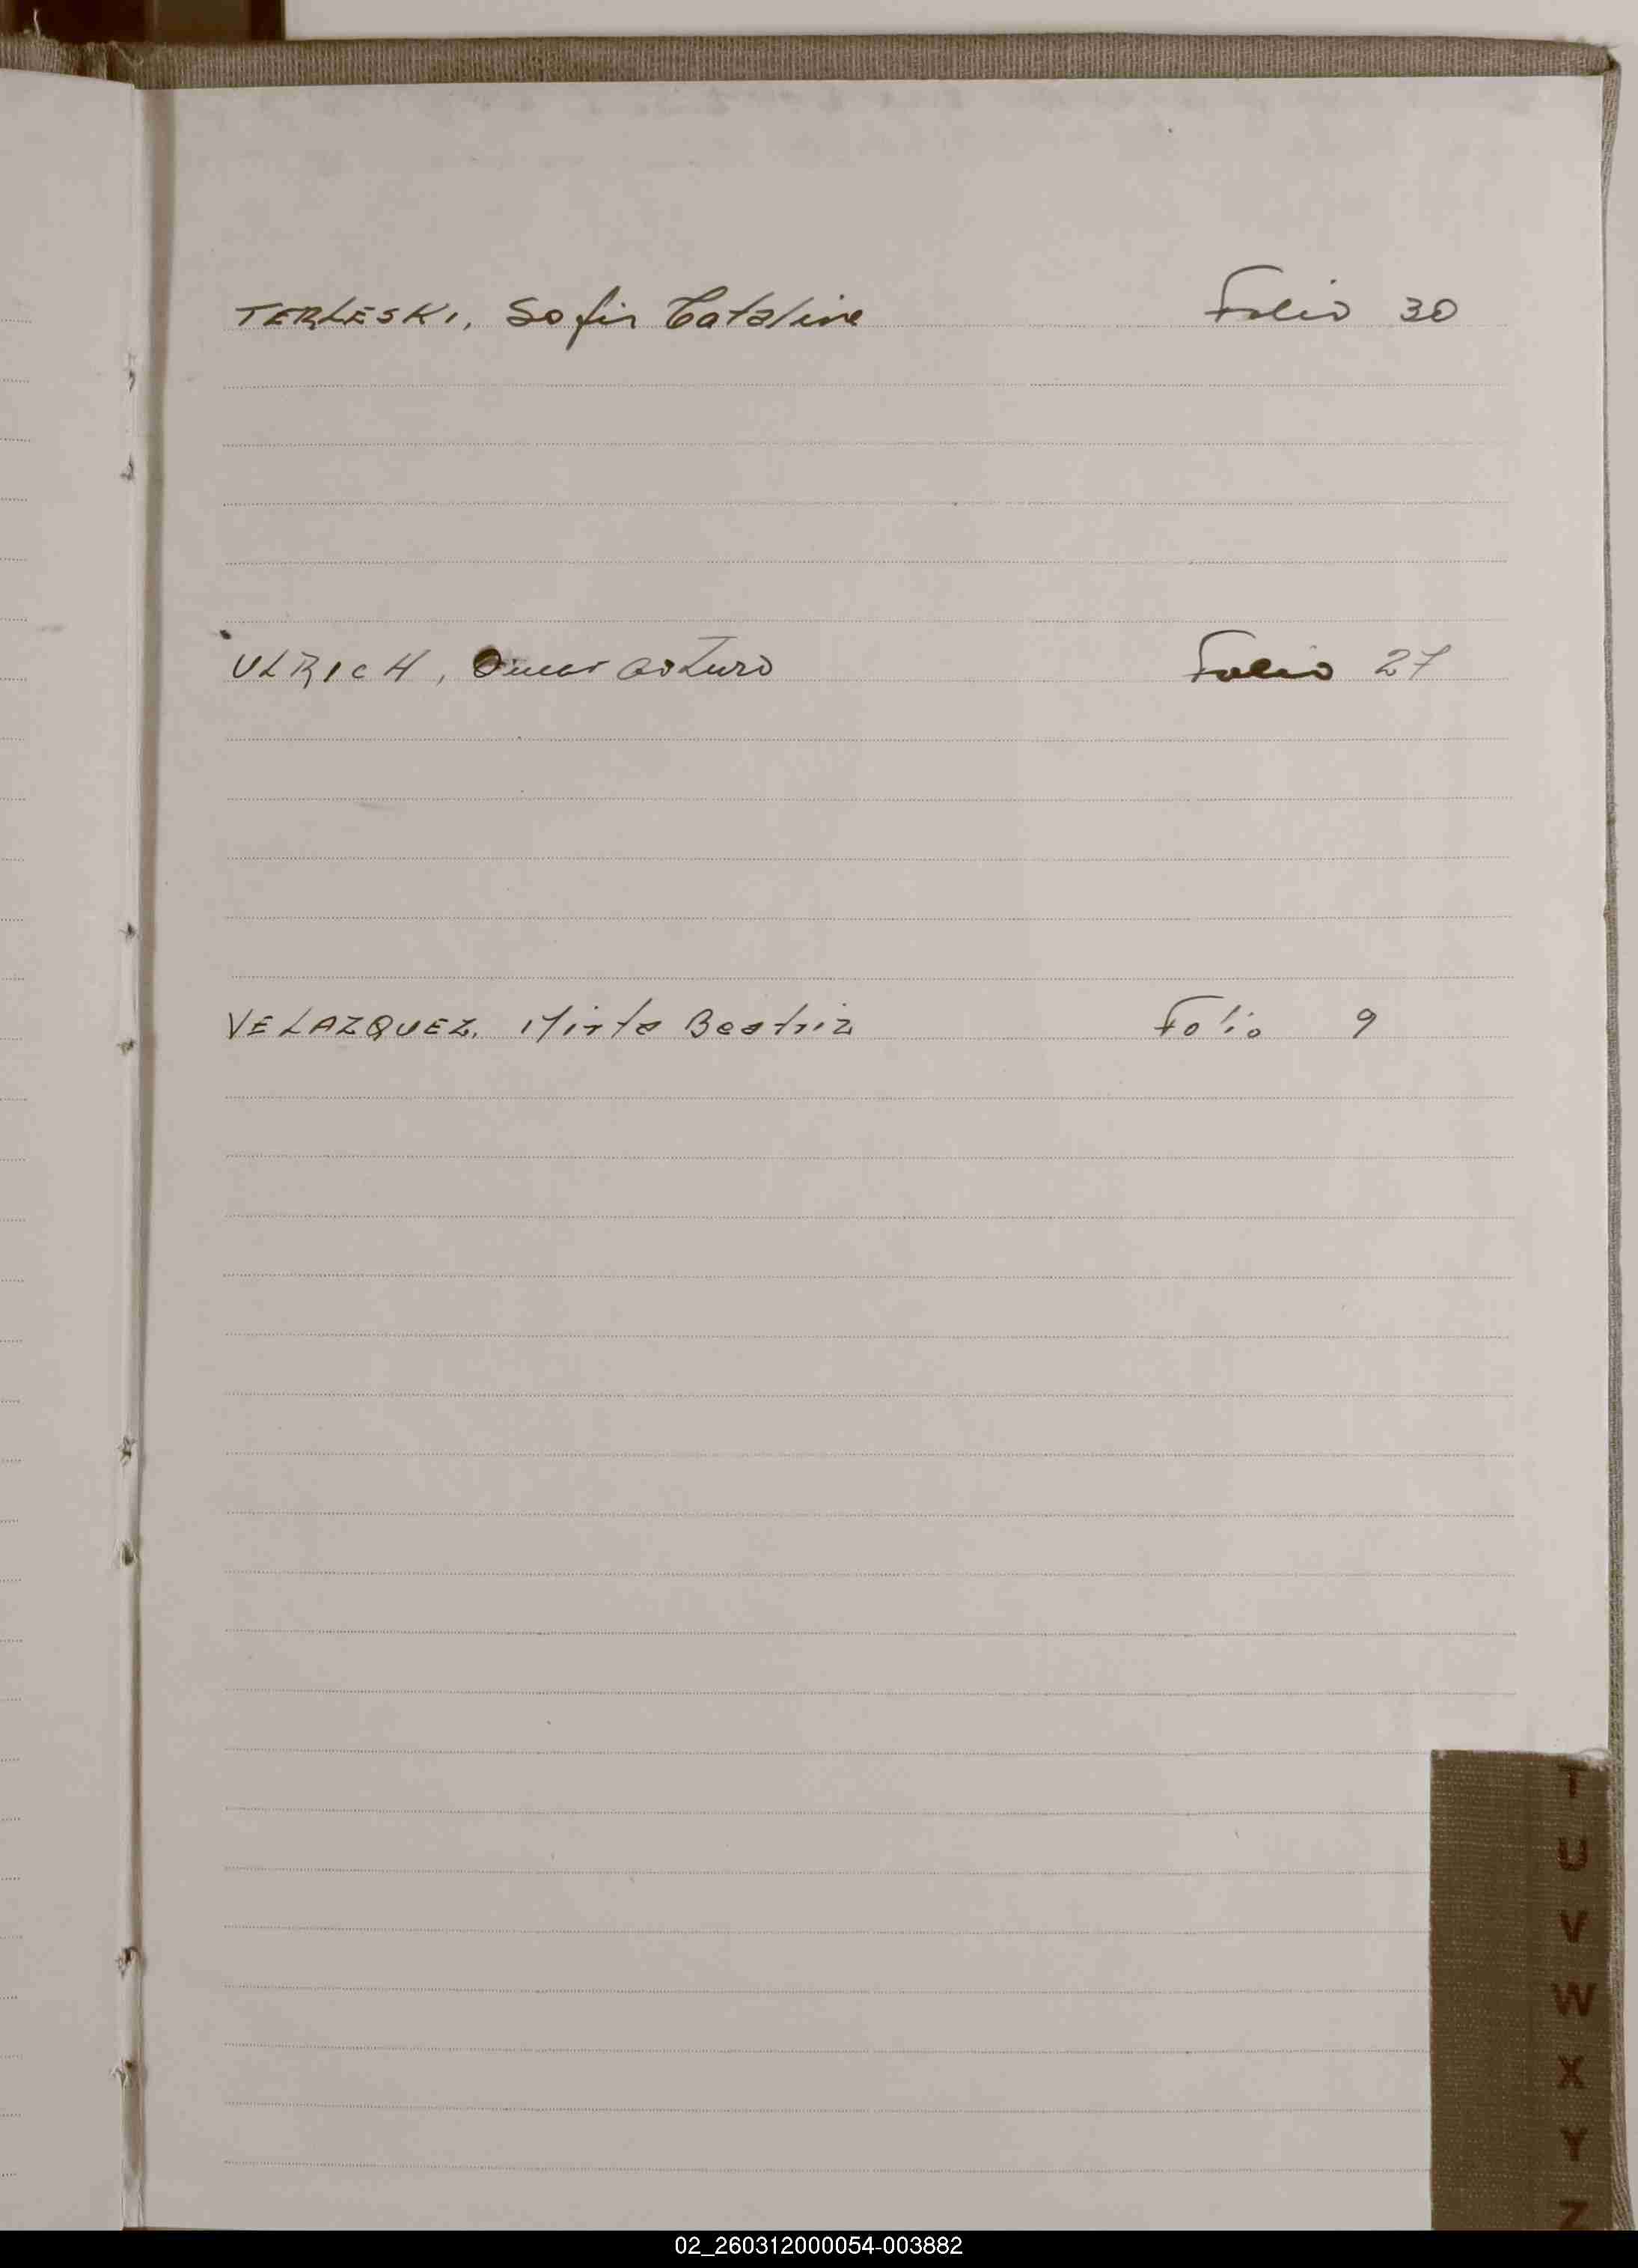 TERLESKI, Sofia Catalina Folio 30
ULRICH, Omar Arturo Folio 27
VELAZQUEZ, Mirta Beatriz Folio 9
T
U
V
W
X
Y
Z
02_260312000054-003882